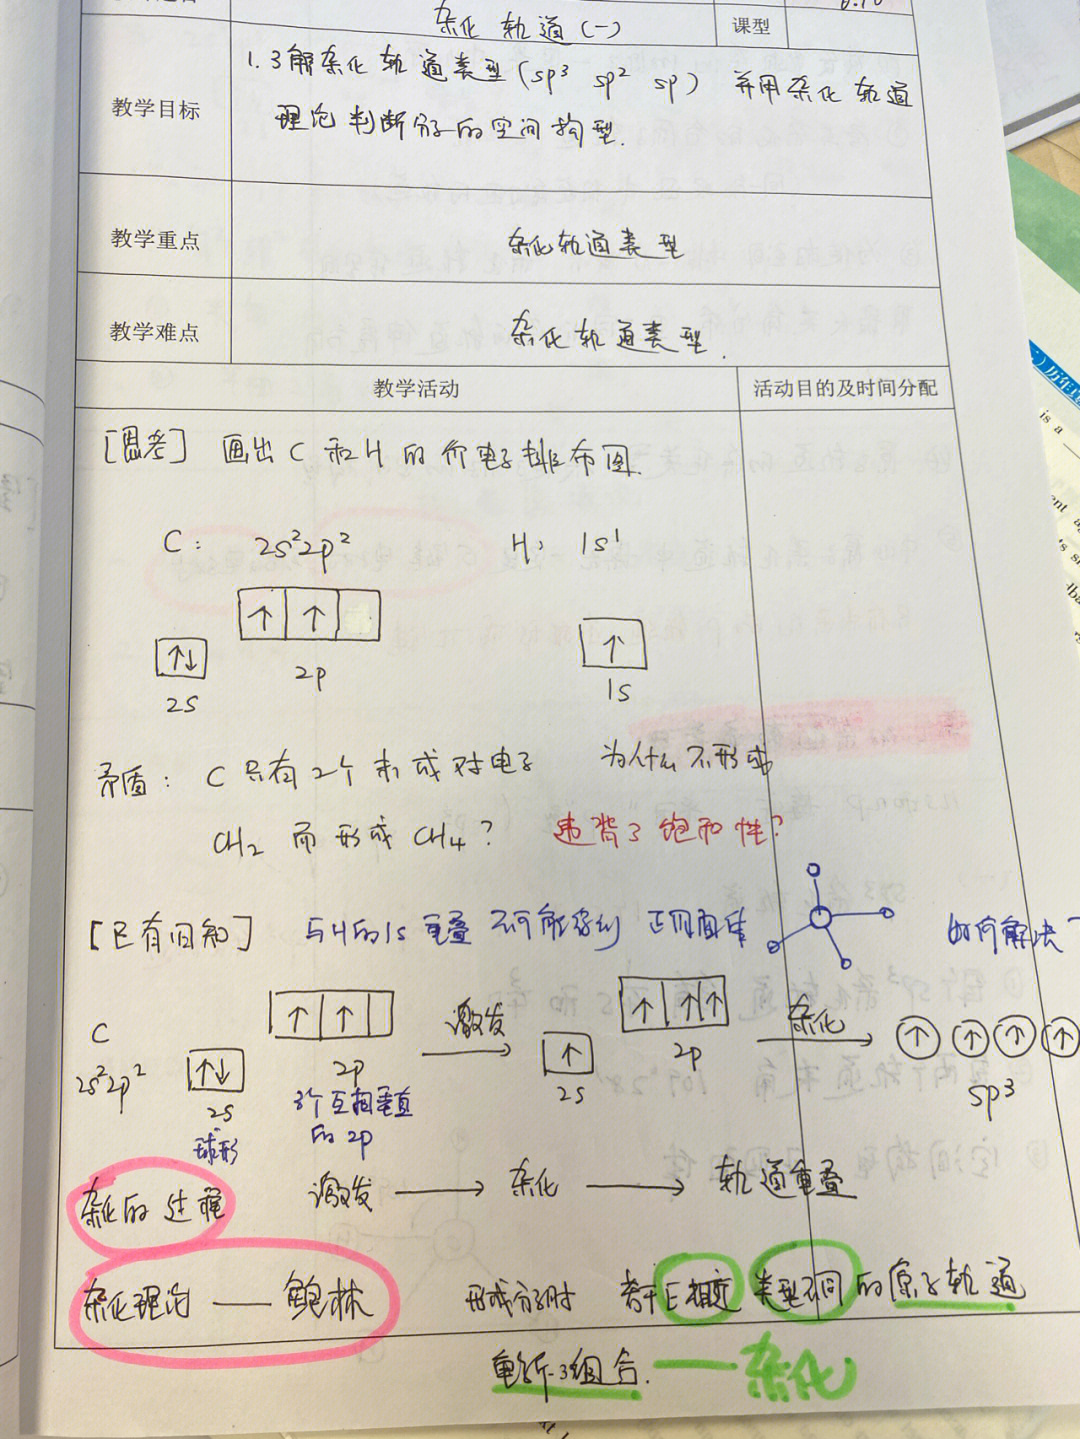 杂化轨道(一) 课型
教学目标
1.了解杂化轨道类型(sp³ sp² sp) 并用杂化轨道
理论判断分子的空间构型.
教学重点 杂化轨道类型
教学难点 杂化轨道类型.
教学活动 活动目的及时间分配
[思考] 画出C和H的价电子排布图.
C: 2s²2p² H: 1s¹
↑ ↑
↑↓ ↑
2s 2p 1s
矛盾: C只有2个未成对电子 为什么不形成
CH₂ 而形成CH₄? 违背了饱和性?
[已有旧知] 与H的1s重叠 不可能得到 正四面体 如何解决
C
2s²2p²
↑↓ ↑ ↑ 激发 ↑ ↑ ↑ ↑ 杂化 ↑ ↑ ↑ ↑
2s 2p 2s 2p sp³
球形 3个互相垂直
的2p
杂化的过程 激发 → 杂化 → 轨道重叠
杂化理论 — 鲍林 形成分子时 若干E相近 类型不同的原子轨道
重新组合. — 杂化